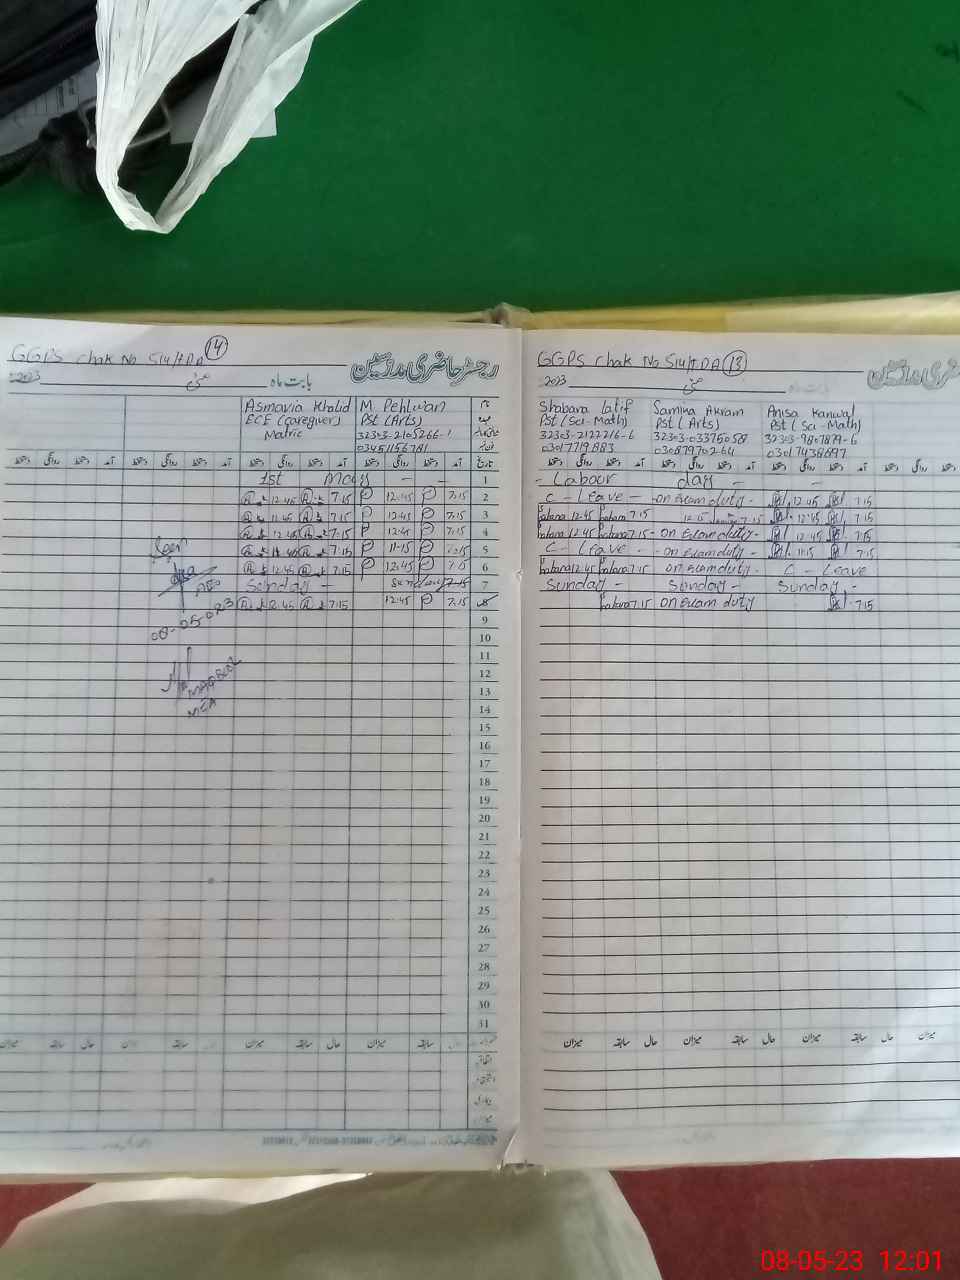 GGPS Chak No 514/TDA 14
رجسٹر حاضری مدرسین
2023 مئی بابت ماہ
Asmavia Khalid
ECE (Caregiver)
Matric
M Pehlwan
Pst (Arts)
32303-2105266-1
03451156781
نام
آمد دستخط روانگی دستخط آمد دستخط روانگی دستخط آمد دستخط روانگی دستخط آمد دستخط روانگی دستخط تاریخ
1st May - - 1
12.45 7.15 P 12.45 P 7.15 2
12.45 7.15 P 12.45 P 7.15 3
12.45 7.15 P 12.45 P 7.15 4
11.40 7.15 P 11-15 P 7.15 5
12.45 7.15 P 12.45 P 7.15 6
Sunday - Sunday 7.15 7
12.45 7.15 12.45 P 7.15 8
Seen
AEO
08-05-023
MAQBOOL
MEA
9
10
11
12
13
14
15
16
17
18
19
20
21
22
23
24
25
26
27
28
29
30
31
میزان سابقہ حال میزان سابقہ حال میزان سابقہ حال میزان سابقہ
GGPS Chak No 514/TDA 13
2023 مئی
Shabara Latif
Pst (Sci-Math)
32303-2122216-6
03017719883
Samina Akram
Pst (Arts)
32303-03375058
03087970264
Anisa Kanwal
Pst (Sci-Math)
32303-9807879-6
03017438697
آمد دستخط روانگی دستخط آمد دستخط روانگی دستخط آمد دستخط روانگی دستخط
- Labour day - -
C - Leave - - on Exam duty - 12.45 7.15
12.45 7.15 12.15 7.15 12.45 7.15
12.45 7.15 - on Exam duty - 12.45 7.15
C - Leave - - on Exam duty - 11.15 7.15
12.45 7.15 on Exam duty - C - Leave
Sunday - Sunday - Sunday -
7.15 on Exam duty 7.15
میزان سابقہ حال میزان سابقہ حال میزان سابقہ حال میزان
08-05-23 12:01